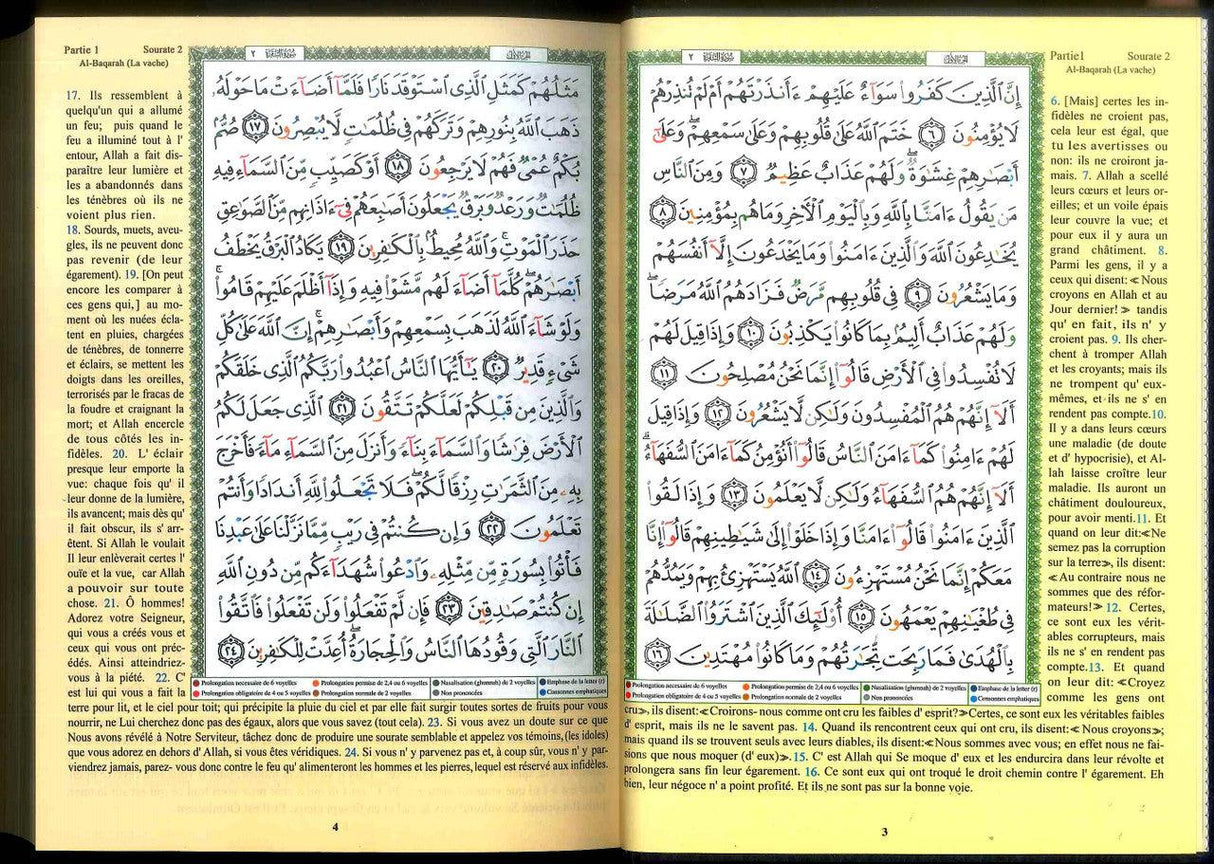 Partie1 Sourate 2
Al-Baqarah (La vache)
٢
إِنَّ ٱلَّذِينَ كَفَرُوا۟ سَوَآءٌ عَلَيْهِمْ ءَأَنذَرْتَهُمْ أَمْ لَمْ تُنذِرْهُمْ
لَا يُؤْمِنُونَ ٦ خَتَمَ ٱللَّهُ عَلَىٰ قُلُوبِهِمْ وَعَلَىٰ سَمْعِهِمْ ۖ وَعَلَىٰٓ
أَبْصَٰرِهِمْ غِشَٰوَةٌ ۖ وَلَهُمْ عَذَابٌ عَظِيمٌ ٧ وَمِنَ ٱلنَّاسِ
مَن يَقُولُ ءَامَنَّا بِٱللَّهِ وَبِٱلْيَوْمِ ٱلْءَاخِرِ وَمَا هُم بِمُؤْمِنِينَ ٨
يُخَٰدِعُونَ ٱللَّهَ وَٱلَّذِينَ ءَامَنُوا۟ وَمَا يَخْدَعُونَ إِلَّآ أَنفُسَهُمْ
وَمَا يَشْعُرُونَ ٩ فِى قُلُوبِهِم مَّرَضٌ فَزَادَهُمُ ٱللَّهُ مَرَضًا ۖ
وَلَهُمْ عَذَابٌ أَلِيمٌۢ بِمَا كَانُوا۟ يَكْذِبُونَ ١٠ وَإِذَا قِيلَ لَهُمْ
لَا تُفْسِدُوا۟ فِى ٱلْأَرْضِ قَالُوٓا۟ إِنَّمَا نَحْنُ مُصْلِحُونَ ١١
أَلَآ إِنَّهُمْ هُمُ ٱلْمُفْسِدُونَ وَلَٰكِن لَّا يَشْعُرُونَ ١٢ وَإِذَا قِيلَ
لَهُمْ ءَامِنُوا۟ كَمَآ ءَامَنَ ٱلنَّاسُ قَالُوٓا۟ أَنُؤْمِنُ كَمَآ ءَامَنَ ٱلسُّفَهَآءُ ۗ
أَلَآ إِنَّهُمْ هُمُ ٱلسُّفَهَآءُ وَلَٰكِن لَّا يَعْلَمُونَ ١٣ وَإِذَا لَقُوا۟
ٱلَّذِينَ ءَامَنُوا۟ قَالُوٓا۟ ءَامَنَّا وَإِذَا خَلَوْا۟ إِلَىٰ شَيَٰطِينِهِمْ قَالُوٓا۟ إِنَّا
مَعَكُمْ إِنَّمَا نَحْنُ مُسْتَهْزِءُونَ ١٤ ٱللَّهُ يَسْتَهْزِئُ بِهِمْ وَيَمُدُّهُمْ
فِى طُغْيَٰنِهِمْ يَعْمَهُونَ ١٥ أُو۟لَٰٓئِكَ ٱلَّذِينَ ٱشْتَرَوُا۟ ٱلضَّلَٰلَةَ
بِٱلْهُدَىٰ فَمَا رَبِحَت تِّجَٰرَتُهُمْ وَمَا كَانُوا۟ مُهْتَدِينَ ١٦
6. [Mais] certes les in-
fidèles ne croient pas,
cela leur est égal, que
tu les avertisses ou
non: ils ne croiront ja-
mais. 7. Allah a scellé
leurs cœurs et leurs or-
eilles; et un voile épais
leur couvre la vue; et
pour eux il y aura un
grand châtiment. 8.
Parmi les gens, il y a
ceux qui disent: ≪ Nous
croyons en Allah et au
Jour dernier! ≫ tandis
qu' en fait, ils n' y
croient pas. 9. Ils cher-
chent à tromper Allah
et les croyants; mais ils
ne trompent qu' eux-
mêmes, et ils ne s' en
rendent pas compte.10.
Il y a dans leurs cœurs
une maladie (de doute
et d' hypocrisie), et Al-
lah laisse croître leur
maladie. Ils auront un
châtiment douloureux,
pour avoir menti.11. Et
quand on leur dit:≪Ne
semez pas la corruption
sur la terre≫, ils disent:
≪Au contraire nous ne
sommes que des réfor-
mateurs!≫ 12. Certes,
ce sont eux les vérit-
ables corrupteurs, mais
ils ne s' en rendent pas
compte.13. Et quand
on leur dit: ≪Croyez
comme les gens ont
Prolongation necessaire de 6 voyelles Prolongation permise de 2,4 ou 6 voyelles Nasalisation (ghunnah) de 2 voyelles Emphase de la letter (r)
Prolongation obligatoire de 4 ou 5 voyelles Prolongation normale de 2 voyelles Non prononcées Consonnes emphatiques
cru≫, ils disent:≪Croirons- nous comme ont cru les faibles d' esprit?≫Certes, ce sont eux les véritables faibles
d' esprit, mais ils ne le savent pas. 14. Quand ils rencontrent ceux qui ont cru, ils disent:≪ Nous croyons≫;
mais quand ils se trouvent seuls avec leurs diables, ils disent:≪Nous sommes avec vous; en effet nous ne fai-
sions que nous moquer (d' eux)≫.15. C' est Allah qui Se moque d' eux et les endurcira dans leur révolte et
prolongera sans fin leur égarement. 16. Ce sont eux qui ont troqué le droit chemin contre l' égarement. Eh
bien, leur négoce n' a point profité. Et ils ne sont pas sur la bonne voie.
3
Partie 1 Sourate 2
Al-Baqarah (La vache)
٢
مَثَلُهُمْ كَمَثَلِ ٱلَّذِى ٱسْتَوْقَدَ نَارًا فَلَمَّآ أَضَآءَتْ مَا حَوْلَهُۥ
ذَهَبَ ٱللَّهُ بِنُورِهِمْ وَتَرَكَهُمْ فِى ظُلُمَٰتٍ لَّا يُبْصِرُونَ ١٧ صُمٌّۢ
بُكْمٌ عُمْىٌ فَهُمْ لَا يَرْجِعُونَ ١٨ أَوْ كَصَيِّبٍ مِّنَ ٱلسَّمَآءِ فِيهِ
ظُلُمَٰتٌ وَرَعْدٌ وَبَرْقٌ يَجْعَلُونَ أَصَٰبِعَهُمْ فِىٓ ءَاذَانِهِم مِّنَ ٱلصَّوَٰعِقِ
حَذَرَ ٱلْمَوْتِ ۚ وَٱللَّهُ مُحِيطٌۢ بِٱلْكَٰفِرِينَ ١٩ يَكَادُ ٱلْبَرْقُ يَخْطَفُ
أَبْصَٰرَهُمْ ۖ كُلَّمَآ أَضَآءَ لَهُم مَّشَوْا۟ فِيهِ وَإِذَآ أَظْلَمَ عَلَيْهِمْ قَامُوا۟ ۚ
وَلَوْ شَآءَ ٱللَّهُ لَذَهَبَ بِسَمْعِهِمْ وَأَبْصَٰرِهِمْ ۚ إِنَّ ٱللَّهَ عَلَىٰ كُلِّ
شَىْءٍ قَدِيرٌ ٢٠ يَٰٓأَيُّهَا ٱلنَّاسُ ٱعْبُدُوا۟ رَبَّكُمُ ٱلَّذِى خَلَقَكُمْ
وَٱلَّذِينَ مِن قَبْلِكُمْ لَعَلَّكُمْ تَتَّقُونَ ٢١ ٱلَّذِى جَعَلَ لَكُمُ
ٱلْأَرْضَ فِرَٰشًا وَٱلسَّمَآءَ بِنَآءً وَأَنزَلَ مِنَ ٱلسَّمَآءِ مَآءً فَأَخْرَجَ
بِهِۦ مِنَ ٱلثَّمَرَٰتِ رِزْقًا لَّكُمْ ۖ فَلَا تَجْعَلُوا۟ لِلَّهِ أَندَادًا وَأَنتُمْ
تَعْلَمُونَ ٢٢ وَإِن كُنتُمْ فِى رَيْبٍ مِّمَّا نَزَّلْنَا عَلَىٰ عَبْدِنَا
فَأْتُوا۟ بِسُورَةٍ مِّن مِّثْلِهِۦ وَٱدْعُوا۟ شُهَدَآءَكُم مِّن دُونِ ٱللَّهِ
إِن كُنتُمْ صَٰدِقِينَ ٢٣ فَإِن لَّمْ تَفْعَلُوا۟ وَلَن تَفْعَلُوا۟ فَٱتَّقُوا۟
ٱلنَّارَ ٱلَّتِى وَقُودُهَا ٱلنَّاسُ وَٱلْحِجَارَةُ ۖ أُعِدَّتْ لِلْكَٰفِرِينَ ٢٤
17. Ils ressemblent à
quelqu'un qui a allumé
un feu; puis quand le
feu a illuminé tout à l'
entour, Allah a fait dis-
paraître leur lumière et
les a abandonnés dans
les ténèbres où ils ne
voient plus rien.
18. Sourds, muets, aveu-
gles, ils ne peuvent donc
pas revenir (de leur
égarement). 19. [On peut
encore les comparer à
ces gens qui,] au mo-
ment où les nuées écla-
tent en pluies, chargées
de ténèbres, de tonnerre
et éclairs, se mettent les
doigts dans les oreilles,
terrorisés par le fracas de
la foudre et craignant la
mort; et Allah encercle
de tous côtés les in-
fidèles. 20. L' éclair
presque leur emporte la
vue: chaque fois qu' il
leur donne de la lumière,
ils avancent; mais dès qu'
il fait obscur, ils s' arr-
êtent. Si Allah le voulait
Il leur enlèverait certes l'
ouïe et la vue, car Allah
a pouvoir sur toute
chose. 21. Ô hommes!
Adorez votre Seigneur,
qui vous a créés vous et
ceux qui vous ont préc-
édés. Ainsi atteindriez-
vous à la piété. 22. C'
est lui qui vous a fait la
Prolongation necessaire de 6 voyelles Prolongation permise de 2,4 ou 6 voyelles Nasalisation (ghunnah) de 2 voyelles Emphase de la letter (r)
Prolongation obligatoire de 4 ou 5 voyelles Prolongation normale de 2 voyelles Non prononcées Consonnes emphatiques
terre pour lit, et le ciel pour toit; qui précipite la pluie du ciel et par elle fait surgir toutes sortes de fruits pour vous
nourrir, ne Lui cherchez donc pas des égaux, alors que vous savez (tout cela). 23. Si vous avez un doute sur ce que
Nous avons révélé à Notre Serviteur, tâchez donc de produire une sourate semblable et appelez vos témoins,(les idoles)
que vous adorez en dehors d'Allah, si vous êtes véridiques. 24. Si vous n' y parvenez pas et, à coup sûr, vous n' y par-
viendrez jamais, parez- vous donc contre le feu qu' alimenteront les hommes et les pierres,lequel est réservé aux infidèles.
4